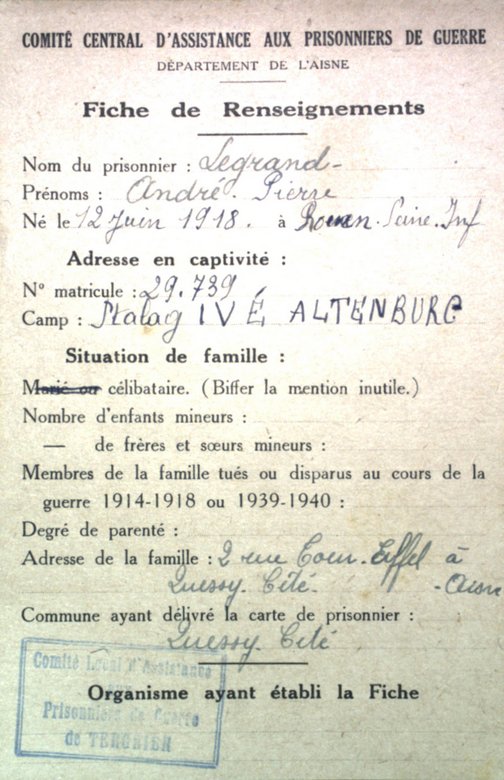 COMITÉ CENTRAL D'ASSISTANCE AUX PRISONNIERS DE GUERRE
DÉPARTEMENT DE L'AISNE
Fiche de Renseignements
Nom du prisonnier : Legrand
Prénoms : André. Pierre
Né le 12 Juin 1918. à Rouen. Seine. Inf
Adresse en captivité :
N° matricule : 29.739
Camp : Stalag IVÉ ALTENBURG
Situation de famille :
Marié ou célibataire. (Biffer la mention inutile.)
Nombre d'enfants mineurs :
— de frères et sœurs mineurs :
Membres de la famille tués ou disparus au cours de la
guerre 1914-1918 ou 1939-1940 :
Degré de parenté :
Adresse de la famille : 2 rue Tour. Eiffel à
Quessy. Cité. - Aisne
Commune ayant délivré la carte de prisonnier :
Quessy. Cité
Comité Local d'Assistance
aux
Prisonniers de Guerre
de TERGNIER
Organisme ayant établi la Fiche